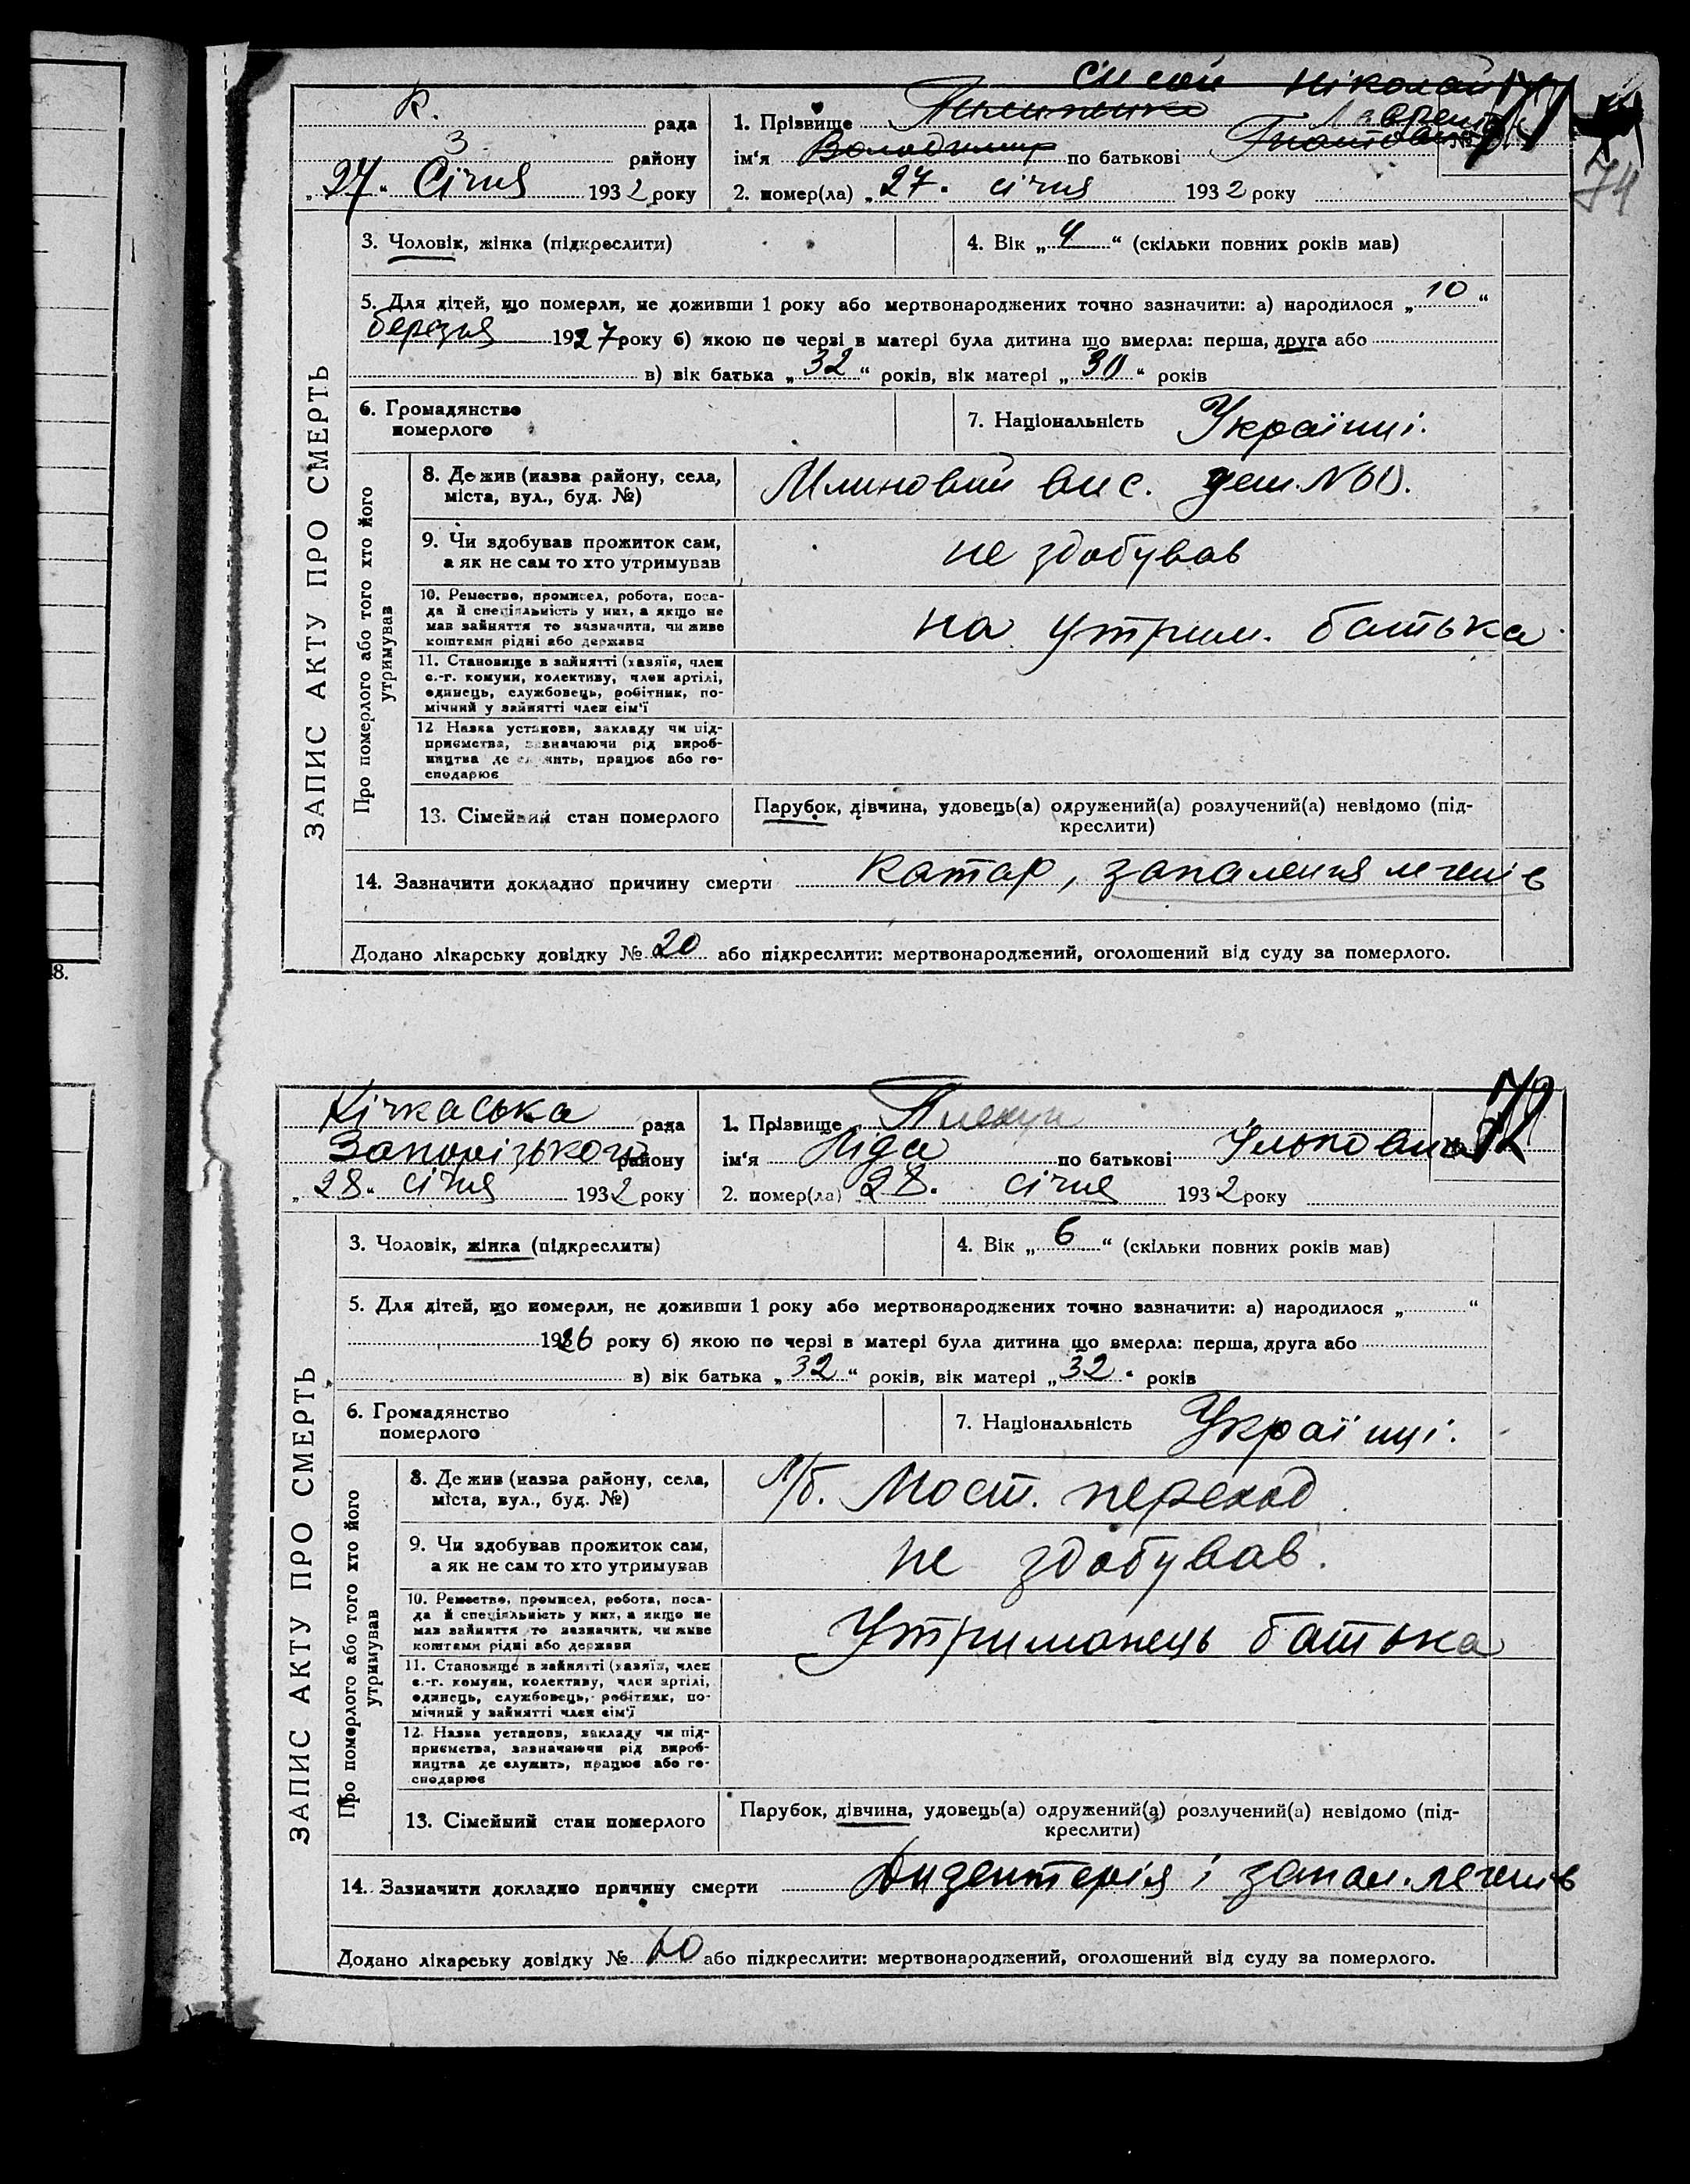 Сисой Ніколай
К. рада
1. Прізвище
Лаврент
З. району
ім‘я Володимир по батькові
№ 71
74
„27“ Січня 1932 року
2. помер(ла) „27“ січня 1932 року
ЗАПИС АКТУ ПРО СМЕРТЬ
3. Чоловік, жінка (підкреслити)
4. Вік „4“ (скільки повних років мав)
5. Для дітей, що померли, не доживши 1 року або мертвонароджених точно зазначити: а) народилося „10“
березня 1927 року б) якою по черзі в матері була дитина що вмерла: перша, друга або
в) вік батька „32“ років, вік матері „30“ років
6. Громадянство
померлого
7. Національність Українці.
Про померлого або того хто його
утримував
8. Де жив (назва району, села,
міста, вул., буд. №)
Млиновий вис.
9. Чи здобував прожиток сам,
а як не сам то хто утримував
не здобував
10. Ремество, промисел, робота, поса-
да й спеціяльність у них, а якщо не
мав зайняття то зазначити, чи живе
коштами рідні або держави
на утрим. батька
11. Становище в зайнятті (хазяїн, член
с.-г. комуни, колективу, член артілі,
одинець, службовець, робітник, по-
мічний у зайнятті член сім‘ї
12. Назва установи, закладу чи під-
приємства, зазначаючи рід вироб-
ництва де служить, працює або го-
сподарює
13. Сімейний стан померлого
Парубок, дівчина, удовець(а) одружений(а) розлучений(а) невідомо (під-
креслити)
14. Зазначити докладно причину смерти катар, запалення легенів
Додано лікарську довідку № 20 або підкреслити: мертвонароджений, оголошений від суду за померлого.
Кічкаська рада
1. Прізвище
72
Запорізького району
ім‘я Ліда по батькові Ільковна
„28“ січня 1932 року
2. помер(ла) 28. січня 1932 року
ЗАПИС АКТУ ПРО СМЕРТЬ
3. Чоловік, жінка (підкреслити)
4. Вік „6“ (скільки повних років мав)
5. Для дітей, що померли, не доживши 1 року або мертвонароджених точно зазначити: а) народилося „ “
1926 року б) якою по черзі в матері була дитина що вмерла: перша, друга або
в) вік батька „32“ років, вік матері „32“ років
6. Громадянство
померлого
7. Національність Українці.
Про померлого або того хто його
утримував
8. Де жив (назва району, села,
міста, вул., буд. №)
Л/б. Мост. переход
9. Чи здобував прожиток сам,
а як не сам то хто утримував
не здобував.
10. Ремество, промисел, робота, поса-
да й спеціяльність у них, а якщо не
мав зайняття то зазначити, чи живе
коштами рідні або держави
Утриманець батька
11. Становище в зайнятті (хазяїн, член
с.-г. комуни, колективу, член артілі,
одинець, службовець, робітник, по-
мічний у зайнятті член сім‘ї
12. Назва установи, закладу чи під-
приємства, зазначаючи рід вироб-
ництва де служить, працює або го-
сподарює
13. Сімейний стан померлого
Парубок, дівчина, удовець(а) одружений(а) розлучений(а) невідомо (під-
креслити)
14. Зазначити докладно причину смерти Дизентерія і запал. легенів
Додано лікарську довідку № 10 або підкреслити: мертвонароджений, оголошений від суду за померлого.
8.